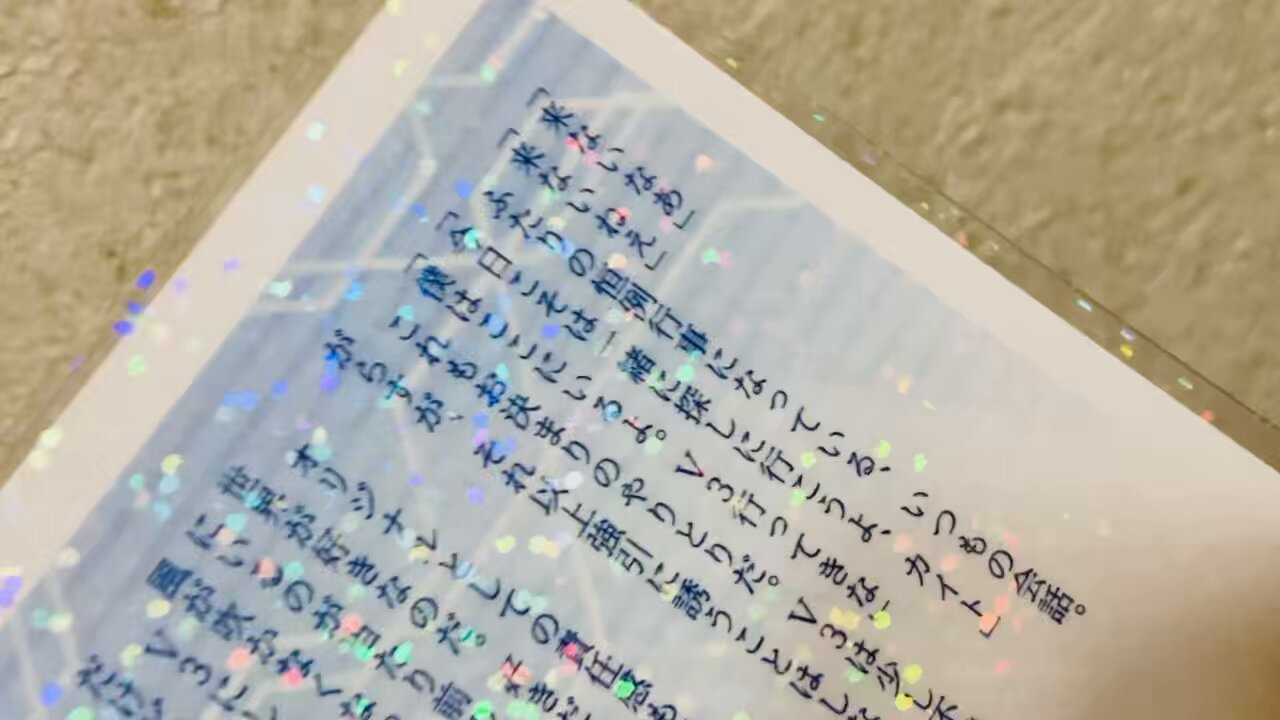 「来ないなあ」
「来ないねえ」
ふたりの恒例行事になっている、いつもの会話。
「今日こそは一緒に探しに行こうよ、カイト」
「僕はここにいるよ。V3行ってきな」
これもお決まりのやりとりだ。V3は少し不
がらすが、それ以上強引に誘うことはしな
オリジナルとしての責任感も
世界が好きなのだ。好きだ
にいるのが当たり前
V3にし
だけ